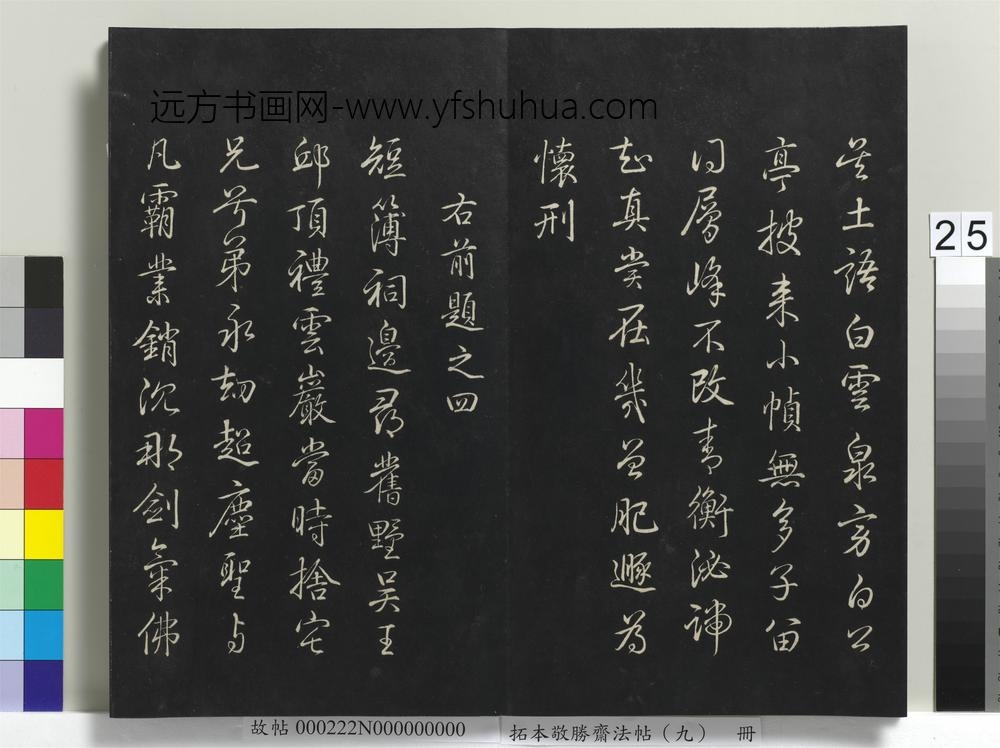 土語白雲泉方白公
亭披来小幀無多子留
同層峰不改青衡泌諦
知真賞在幾曾肥遯為
懷刑
右前題之四
短簿祠邊尋舊墅吳王
邱頂禮雲巖當時捨宅
兄兮弟永劫超塵聖與
凡霸業銷沉那劍氣佛
远方书画网-www.yfshuhua.com
25
故帖 000222N000000000
拓本敬勝齋法帖（九） 冊